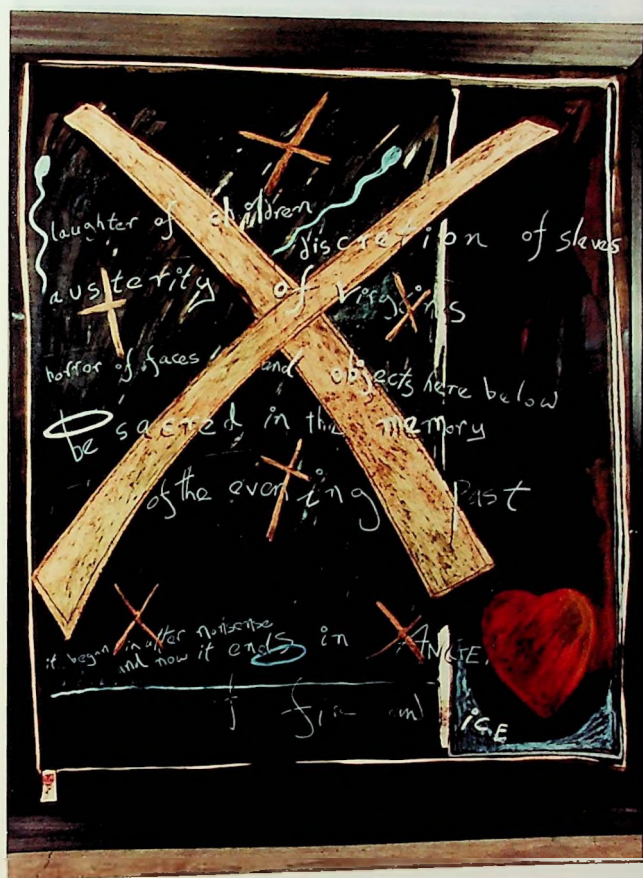 laughter of children
discretion of slaves
austerity of virgins
horror of faces and objects here below
be sacred in the memory
of the evening past
it began in utter nonsense
and now it ends in ANGE
of fire and ICE